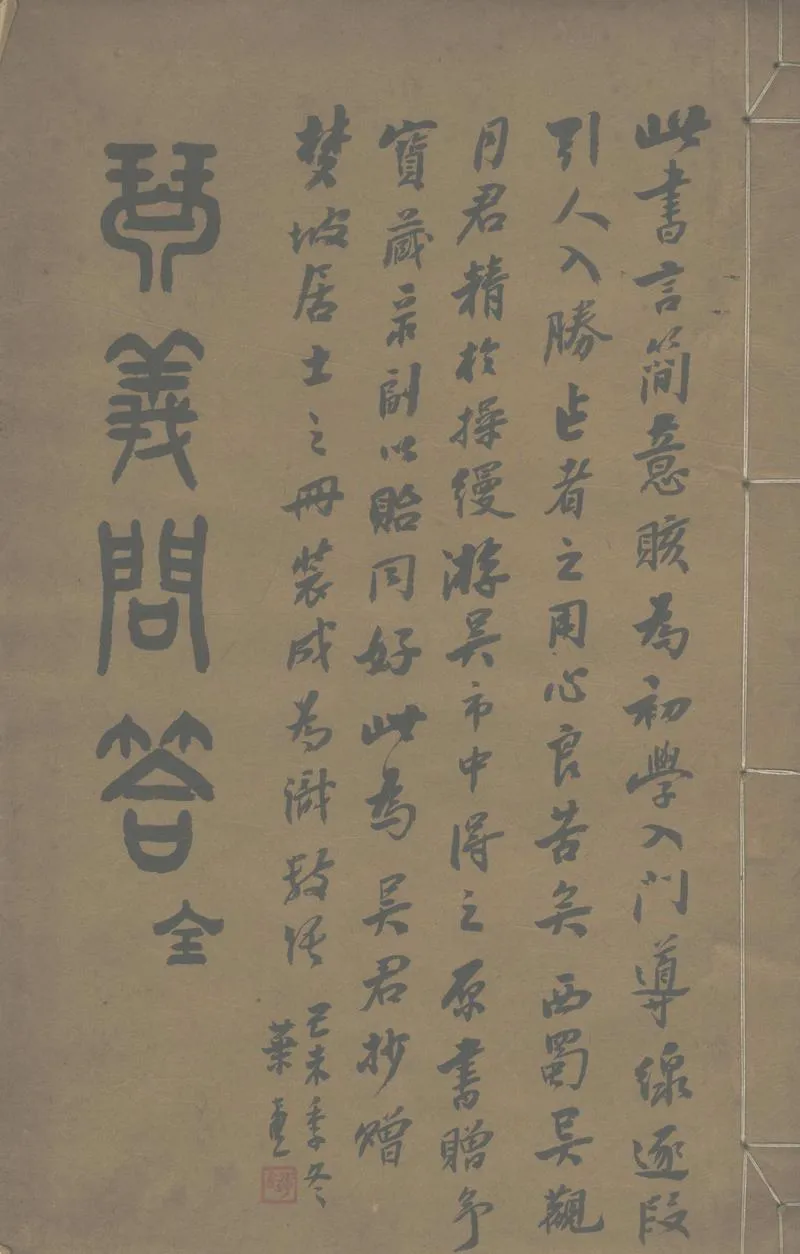 此書言簡意賅為初學入門導線逐段
引人入勝作者之用心良苦矣西蜀吳觀
月君精於操縵游吳市中得之原書贈予
寶藏录副以貽同好此為吳君抄贈
梦坡居士之冊裝成為識數語
己未季冬
葉
琴義問答全